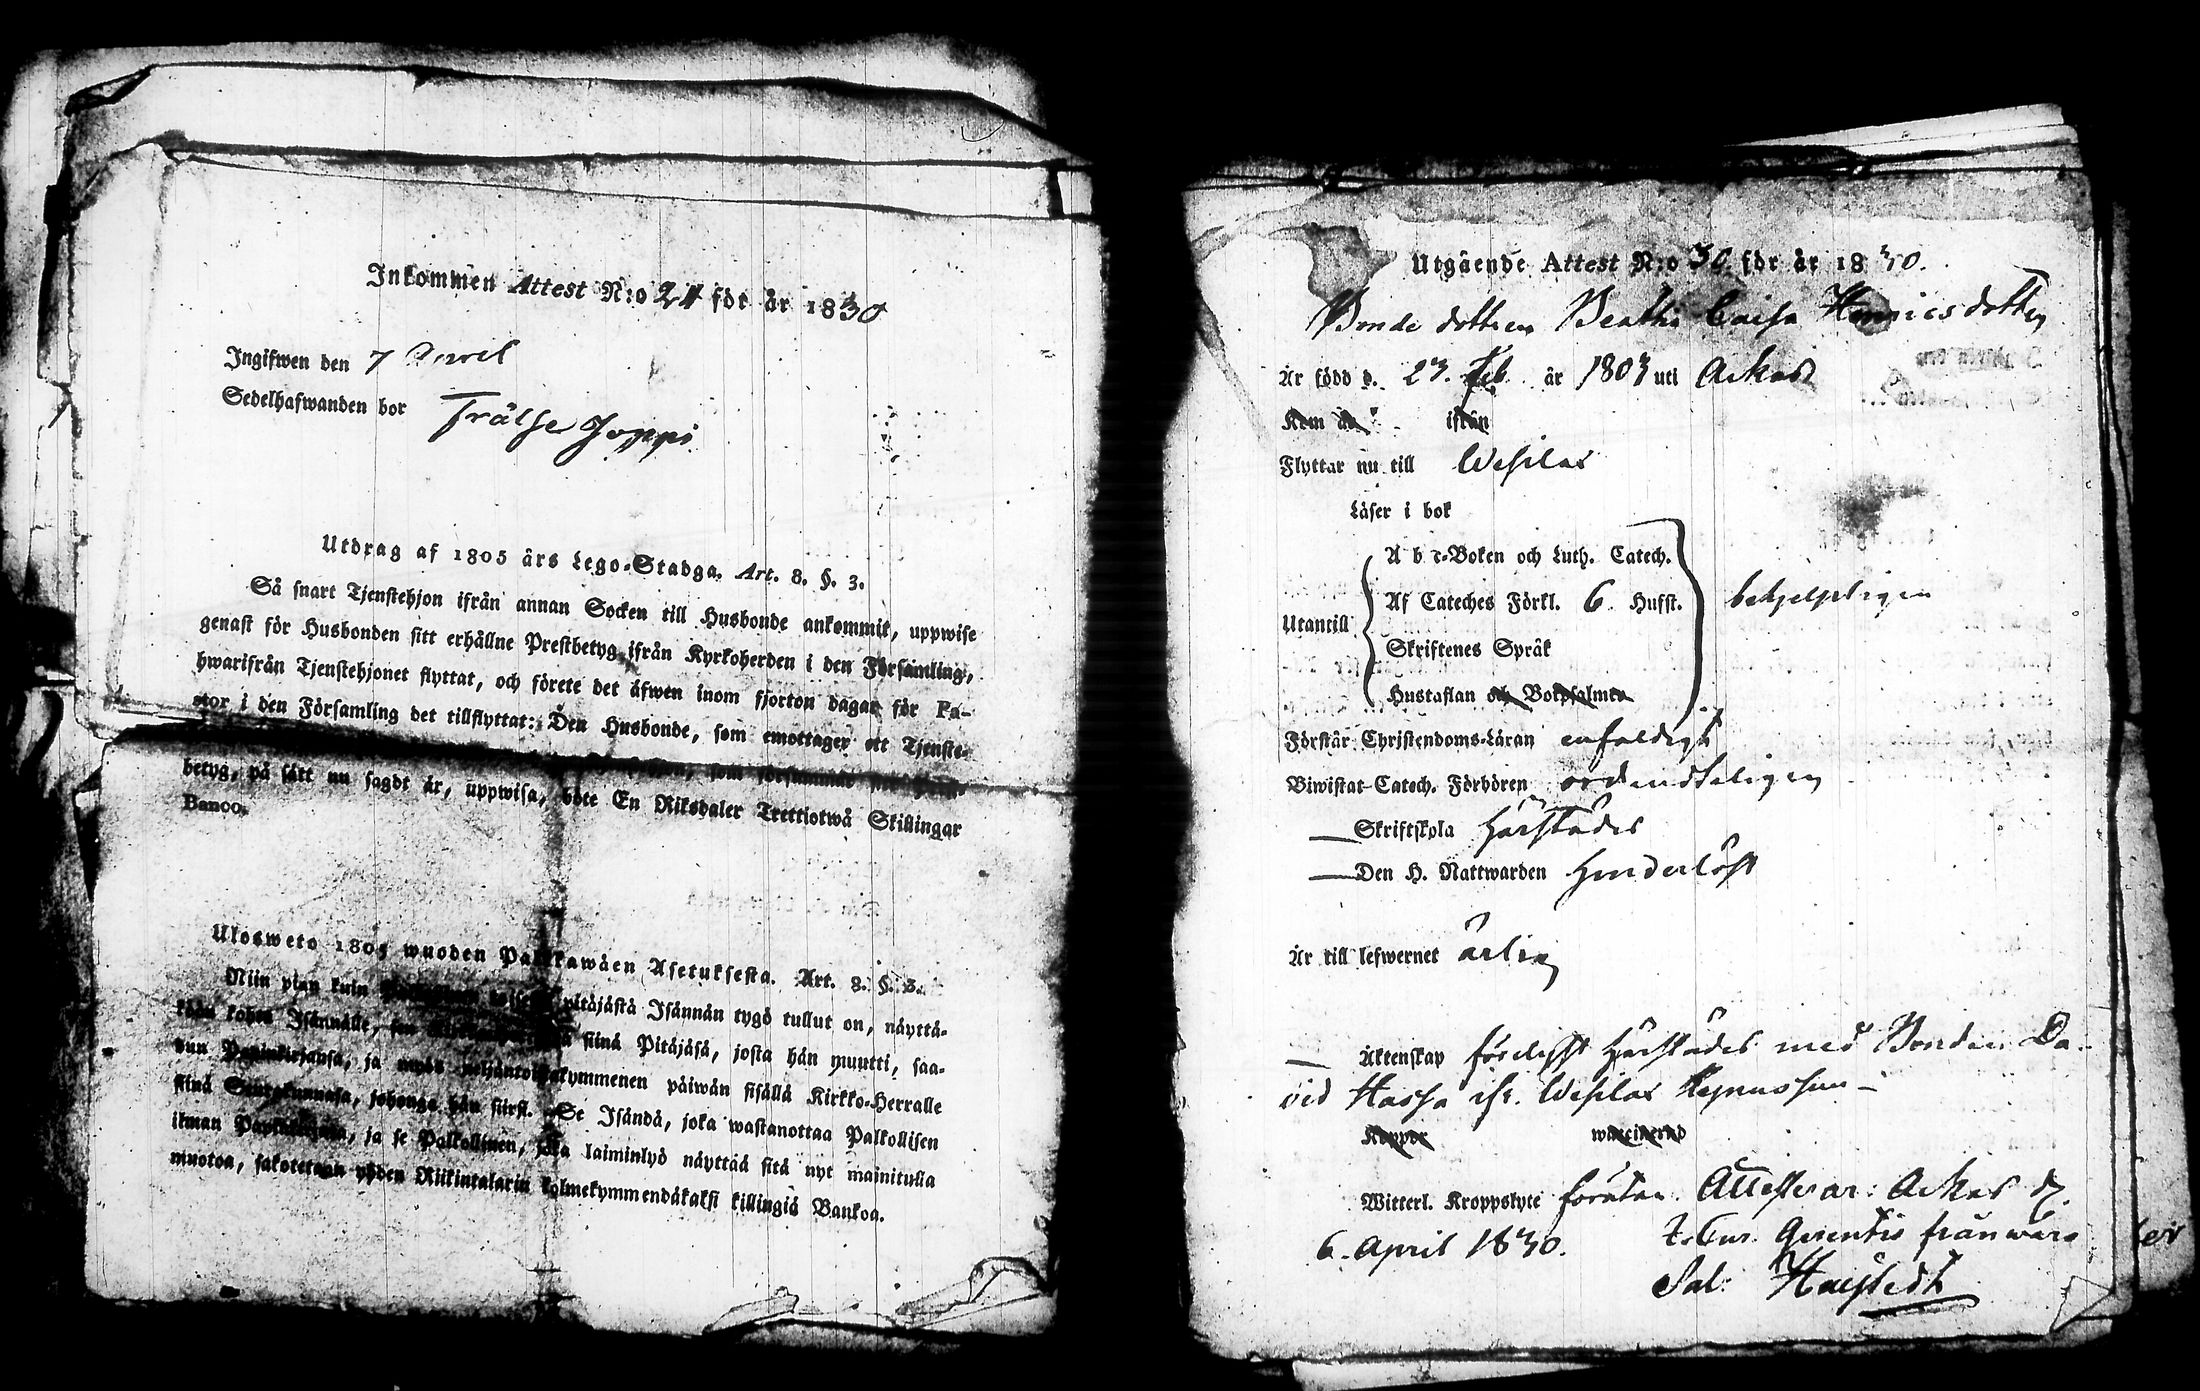 Inkommen Attest N:o 24 för år 1830
Ingifwen den 7 April
Sedelhafwanden bor Frälse Joppi
Utdrag af 1805 års Lego-Stadga. Art. 8. §. 3.
Så snart Tjenstehjon ifrån annan Socken till Husbonde ankommit, uppwise
genast för Husbonden sitt erhållne Prestbetyg ifrån Kyrkoherden i den Församling,
hwarifrån Tjenstehjonet flyttat, och förete det äfwen inom fjorton dagar för Pa-
stor i den Församling det tillflyttat: Den Husbonde, som emottager ett Tjenste-
som försummar
betyg, på sätt nu sagdt är, uppwisa, böte En Riksdaler Trettiotwå Skillingar
Banco.
Ulosweto 1805 wuoden Palkkawäen Asetuksesta. Art. 8. §. 3.
Niin pian kuin pitäjästä Isännän tygö tullut on, näyttä-
kään kohta Isännälle, siinä Pitäjäsä, josta hän muutti, saa-
dun Papinkirjansa, ja myös neljäntoistakymmenen päiwän sisällä Kirkko-Herralle
siinä Seurakunnasa, johonga hän siirsi. Se Isändä, joka wastanottaa Palkollisen
ilman Papinkirjata, ja se Palkollinen, joka laiminlyö näyttää sitä nyt mainitulla
muotoa, sakotetaan yhden Riikintalarin kolmekymmendäkaksi killingiä Bankoa.
Utgående Attest N:o 30 för år 1830.
Bonde dottren Beatha Caisa Henricsdotter
Är född d. 23. Feb. år 1803 uti Ackas
Kom år ifrån
Flyttar nu till Wesilax
Läser i bok
A b c-Boken och Luth. Catech.
Af Cateches Förkl. 6 Hufst.
behjelpligen
Utantill
Skriftenes Språk
Hustaflan och Bokpsalmen
Förstår Christendoms-Läran enfaldigt
Biwistat Catech. Förhören ordenteligen
Skriftskola härstädes
Den H. Nattwarden hinderlöst
Är till lefwernet ärlig
Äktenskap härstädes med Bonden Da-
vid Hassa ifr. Wesilax
Koppor waccinerad
Witterl. Kroppslyte förutan. Attesterar: Ackas d.
6. April 1830. frånwaro
Sal: Hallstedt